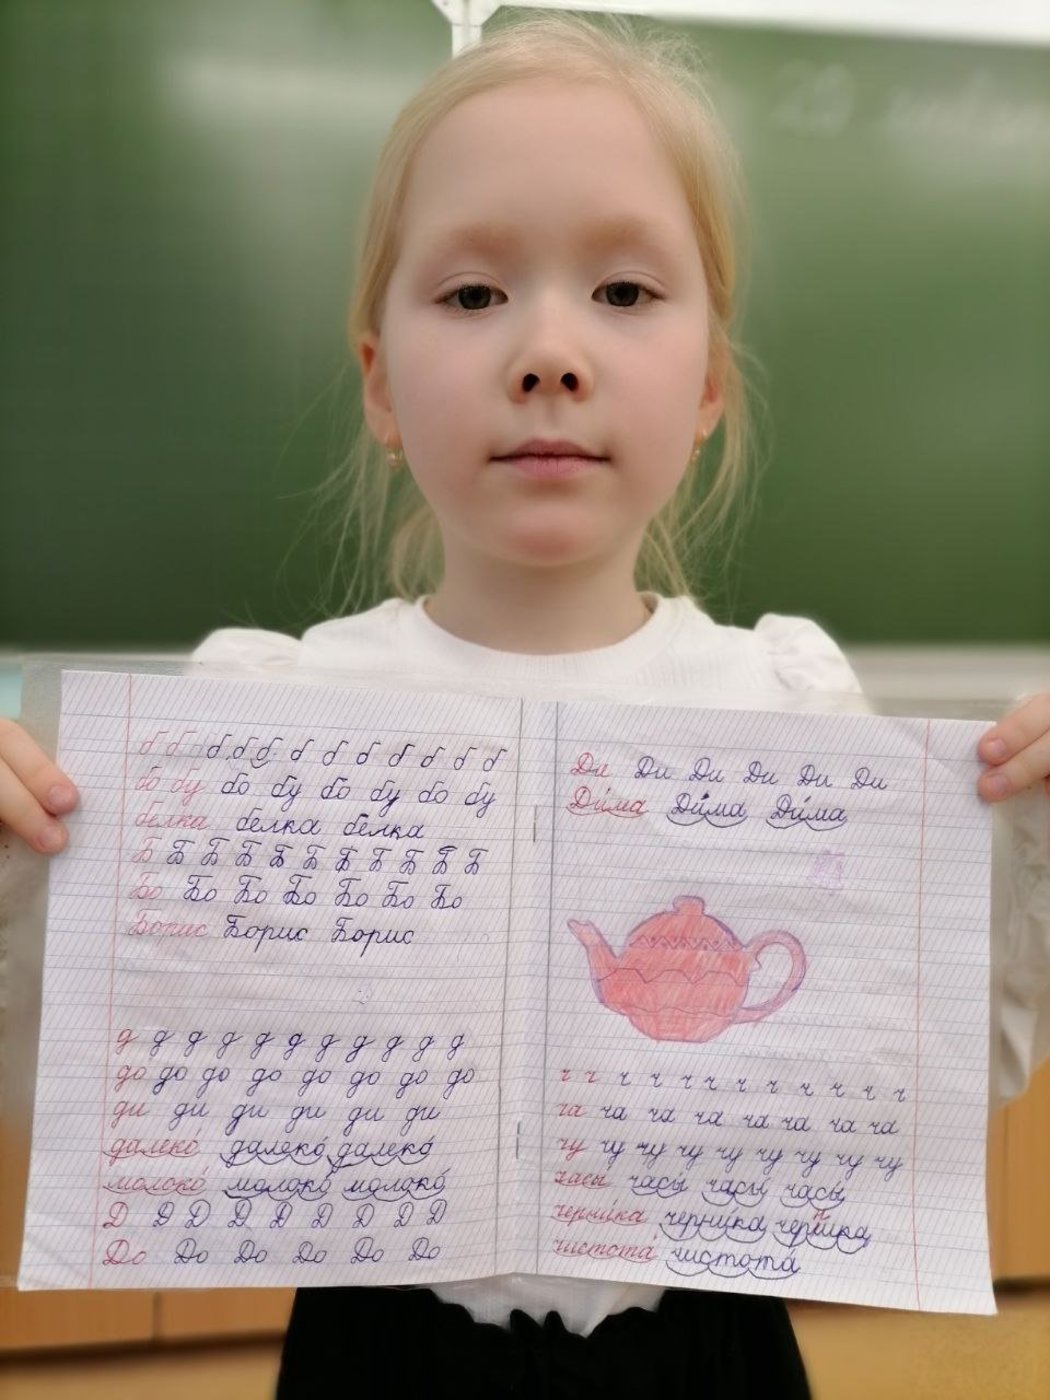 б б б б б б б б б б б б
бо бу бо бу бо бу бо бу
белка белка белка
Б Б Б Б Б Б Б Б Б Б Б
Бо Бо Бо Бо Бо Бо Бо
Борис Борис Борис
д д д д д д д д д д д
до до до до до до до до
ди ди ди ди ди ди
далеко́ далеко́ далеко́
молоко́ молоко́ молоко́
Д Д Д Д Д Д Д Д Д
До До До До До До
Ди Ди Ди Ди Ди Ди
Ди́ма Ди́ма Ди́ма
ч ч ч ч ч ч ч ч ч ч ч ч
ча ча ча ча ча ча ча ча
чу чу чу чу чу чу чу чу чу
часы́ часы́ часы́ часы́
черни́ка черни́ка черни́ка
чистота́ чистота́